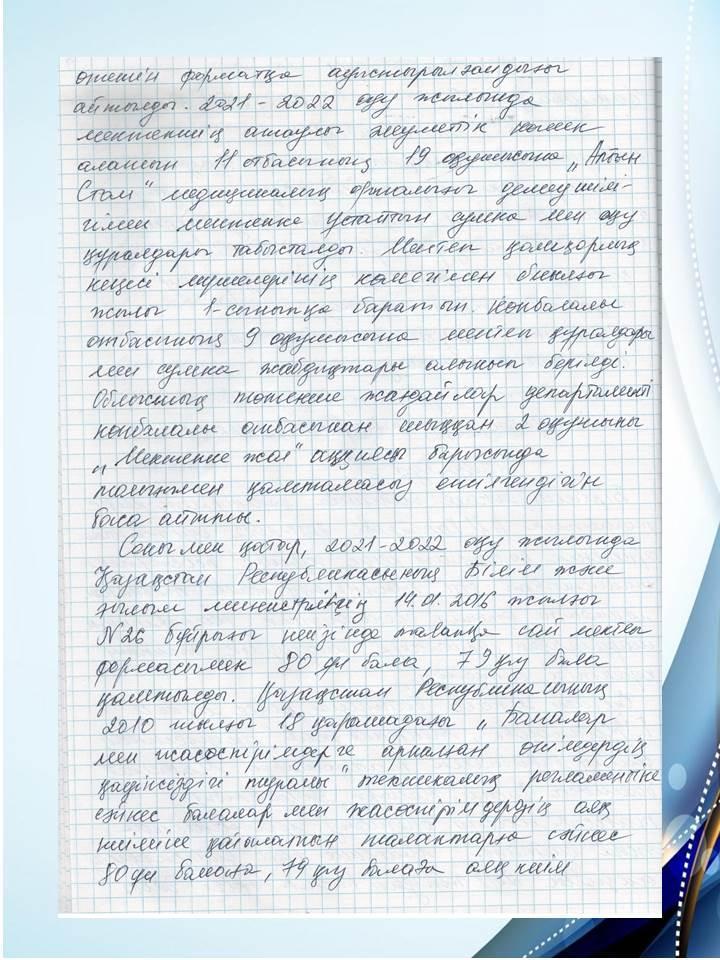 өтетін форматқа ауыстырылғандығы
айтылды. 2021-2022 оқу жылында
мектептің атаулы әлеуметтік көмек
алатын 11 отбасының 19 оқушысына „Алтын
Стом" медициналық орталығы демеушілі-
гімен мектепке ұстайтын сумка мен оқу
құралдары табысталды. Мектеп қамқорлық
кеңесі мүшелерінің көмегімен биылғы
жылы 1-сыныпқа баратын көпбалалы
отбасының 9 оқушысына мектеп құралдары
мен сумка жабдықтары алынып берілді.
Облыстың төтенше жағдайлар департаменті
көпбалалы отбасынан шыққан 2 оқушыны
„Мектепке жол" акциясы барысында
толығымен қамтамасыз етілгендігін
баса айтты.
Сонымен қатар, 2021-2022 оқу жылында
Қазақстан Республикасының Білім және
ғылым министрлігінің 14.01.2016 жылғы
N26 бұйрығы негізінде талапқа сай мектеп
формасымен 80 қыз бала, 79 ұл бала
қамтылды. Қазақстан Республикасының
2010 жылғы 18 қарашадағы „Балалар
мен жасөспірімдерге арналған өнімдердің
қауіпсіздігі туралы" техникалық регламентіне
сәйкес балалар мен жасөспірімдердің аяқ
киіміне қойылатын талаптарға сәйкес
80 қыз балаға, 79 ұл балаға аяқ киім